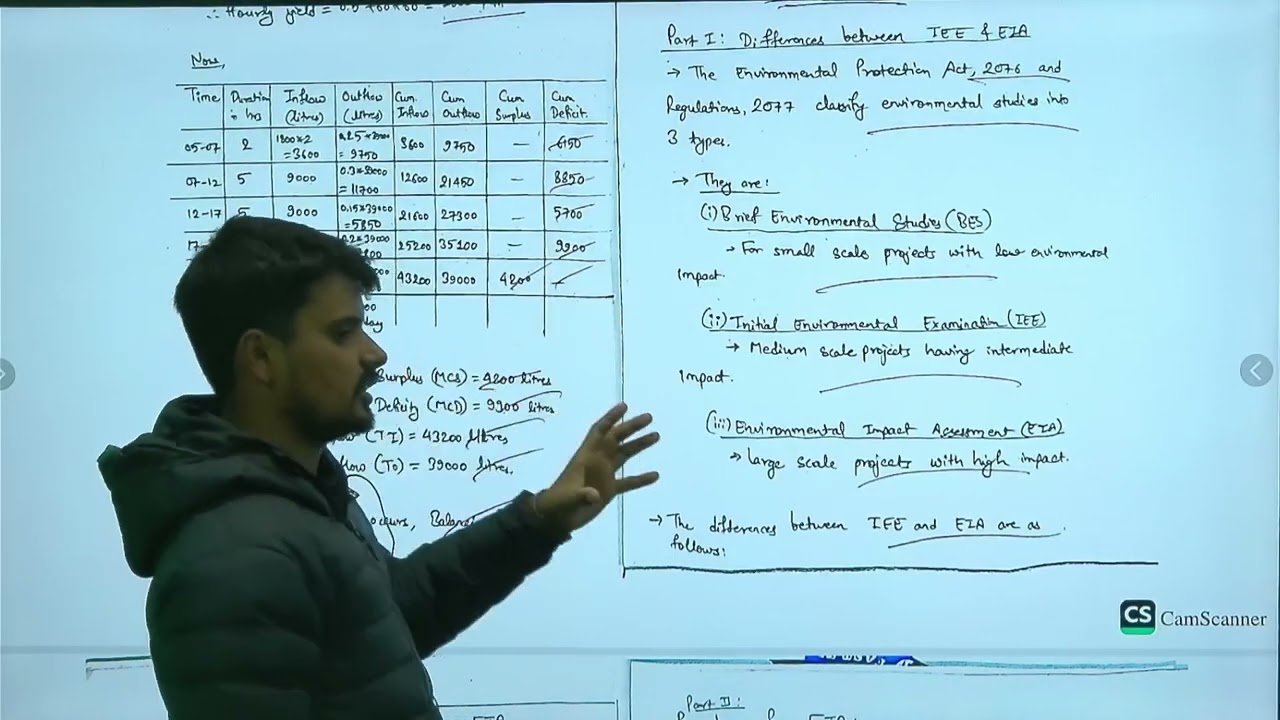 ∴ Hourly yield =
Now,
Time Duration in hrs Inflow (litres) Outflow (litres) Cum. Inflow Cum. Outflow Cum. Surplus Cum. Deficit.
05-07 2 1800×2 = 3600 0.25×39000 = 9750 3600 9750 — 6150
07-12 5 9000 0.3×39000 = 11700 12600 21450 — 8850
12-17 5 9000 0.15×39000 = 5850 21600 27300 — 5700
17- 0.2×39000 25200 35100 — 9900
43200 39000 4200 —
Surplus (MCS) = 4200 litres
Deficit (MCD) = 9900 litres
(TI) = 43200 litres
flow (TO) = 39000 litres.
occurs,
Part I: Differences between IEE & EIA
→ The Environmental Protection Act, 2076 and
Regulations, 2077 classify environmental studies into
3 types.
→ They are:
(i) Brief Environmental Studies (BES)
→ For small scale projects with low environmental
impact.
(ii) Initial Environmental Examination (IEE)
→ Medium scale projects having intermediate
impact.
(iii) Environmental Impact Assessment (EIA)
→ large scale projects with high impact.
→ The differences between IEE and EIA are as
follows:
CS CamScanner
Part II: